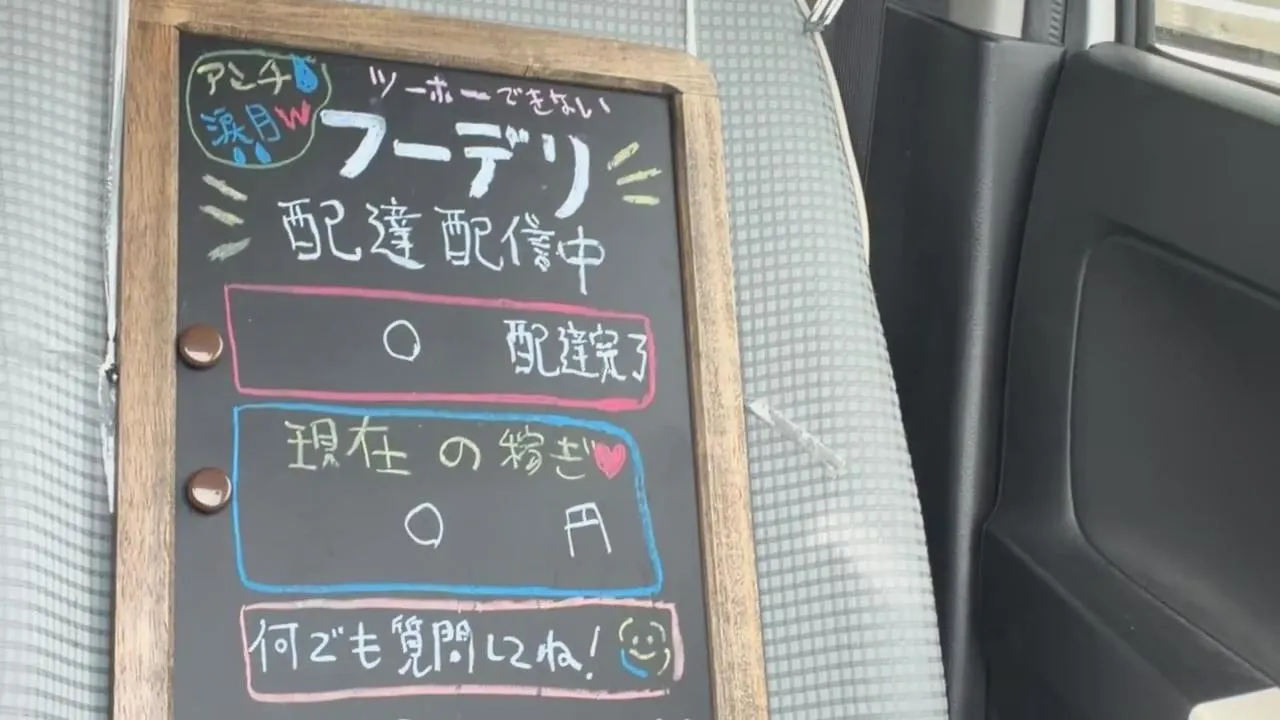 アンチ
涙月W
ツーホーできない
フーデリ
配達配信中
0 配達完了
現在の稼ぎ
0 円
何でも質問してね!